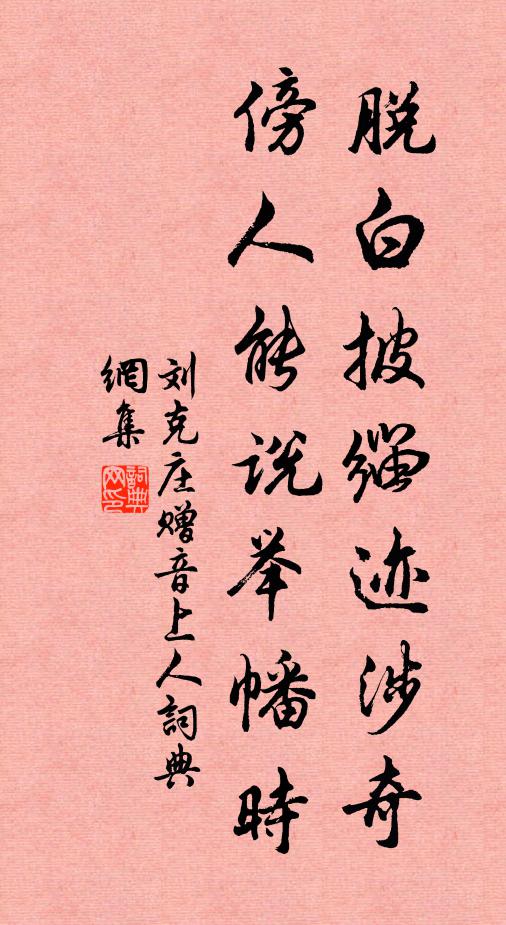 脱白披缁迹涉奇
傍人能说举幡時
刘克庄赠音上人詞典
網集
詞典網印